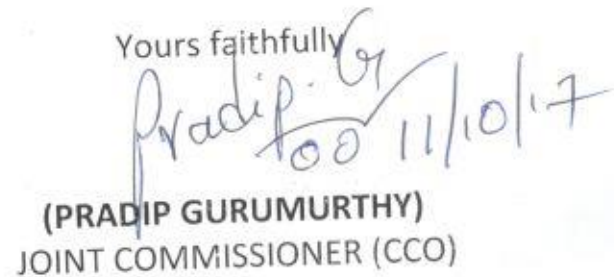 Yours faithfully
Pradip. G
11/10/17
(PRADIP GURUMURTHY)
JOINT COMMISSIONER (CCO)